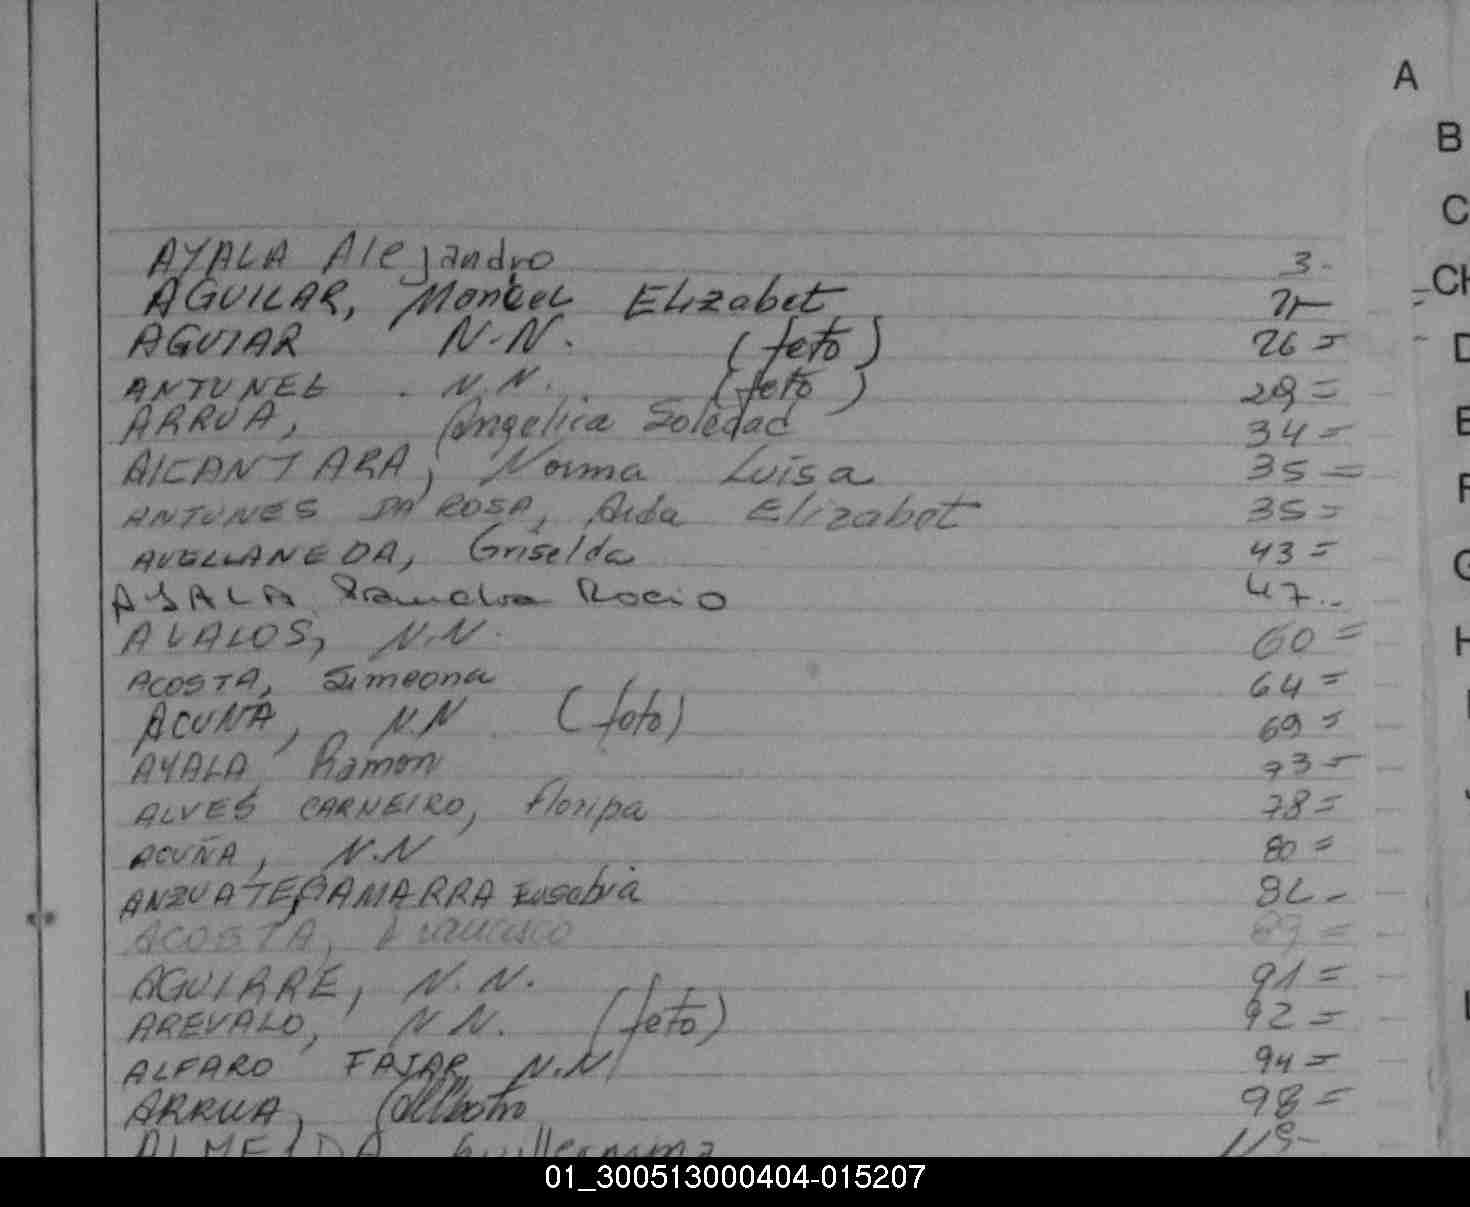 A
B
C
CH
D
E
F
G
H
AYALA Alejandro 3.
AGUILAR, Elizabet
AGUIAR N.N. (feto) 26=
ANTUNEZ N.N. (feto) 29=
ARRUA, Angelica Soledad 34=
AlCANTARA, Norma Luisa 35=
ANTUNES DA ROSA, Aida Elizabet 35=
AVELLANEDA, Griselda 43=
AYALA Rocio 47..
AVALOS, N.N. 60=
ACOSTA, Simeona 64=
ACUÑA, N.N (feto) 69=
AYALA Ramon 73=
ALVES CARNEIRO, Floripa 78=
ACUÑA, N.N 80=
ANZUATEGAMARRA Eusebia
ACOSTA, Francisco
AGUIRRE, N.N. 91=
AREVALO, N N. (feto) 92=
ALFARO FAJAR N.N 94=
ARRUA, 98=
ALMEIDA Guillermina
01_300513000404-015207